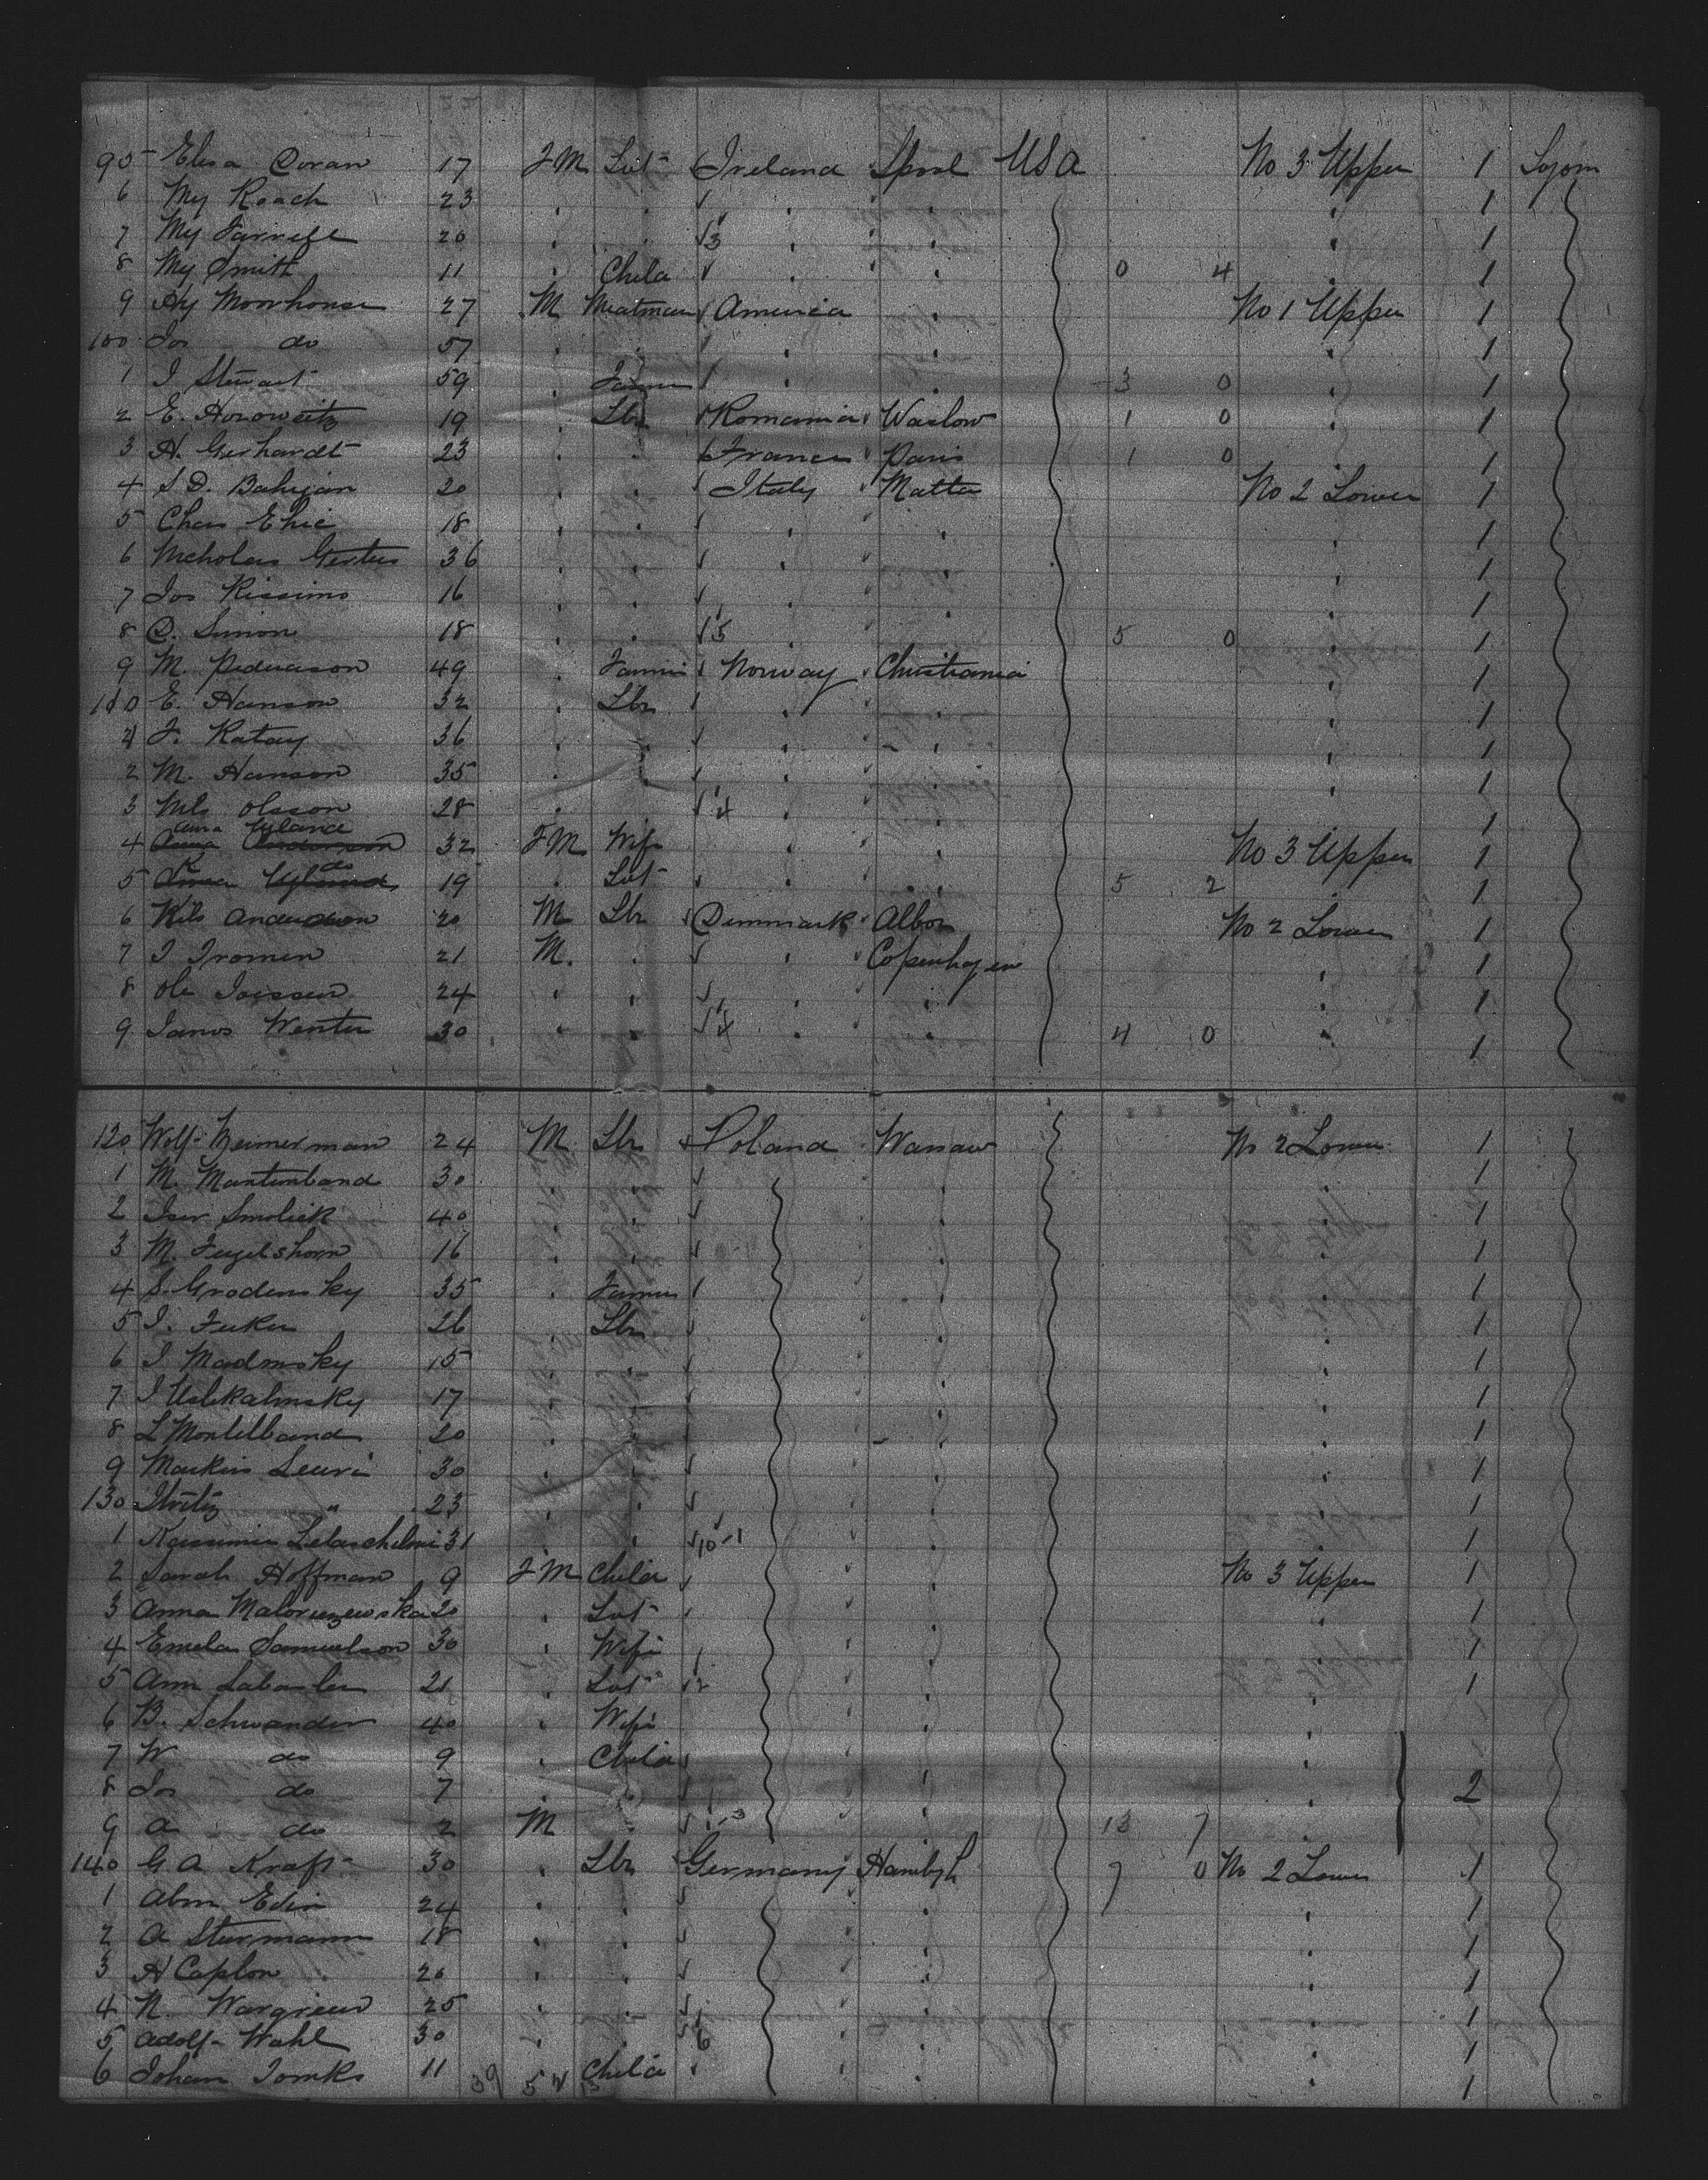 95 Elisa Doran 17 F M Svt Ireland Lpool USA No 3 Upper 1 Sojourn
6 My Roach 23 1
7 My Farrell 20 3 1
8 My Smith 11 Child 0 4 1
9 Hy Moorhouse 27 M Meatman America No 1 Upper 1
100 Jos do 57 1
1 J Stewart 59 Farmer 3 0 1
2 E. Horowitz 19 Lbr Romania 1 0 1
3 H. Gerhardt 23 France Paris 1 0 1
4 S D. Bahijan 20 Italy Malta No 2 Lower 1
5 Chas 18 1
6 Nicholas 36 1
7 Jos Rissimo 16 1
8 D. Simon 18 5 5 0 1
9 M. Pederason 49 Farmer Norway Christiania 1
110 E. Hanson 32 Lbr 1
1 J. Katay 36 1
2 M. Hanson 35 1
3 Nils Olsson 28 4 1
Anna Nyland
4 Anna Anderson 32 F M Wife No 3 Upper 1
do
5 19 Svt 5 2 1
6 Nils Anderson 20 M Lbr Denmark Albor No 2 Lower 1
7 J Iromen 21 M. Copenhagen 1
8 Ole 24 1
9 Janos Wenter 30 4 4 0 1
120 Wolf Zeimerman 24 M Lbr Poland Warsaw No 2 Lower 1
1 M. Mantenband 30 1
2 Iser Smolick 40 1
3 M. Fugelshorn 16 1
4 S. Grodensky 35 Farmer 1
5 J. Fuker 26 Lbr 1
6 J Madmsky 15 1
7 J 17 1
8 L Montelband 20 1
9 Markus 30 1
130 " 23 1
1 31 10-1 1
2 Sarah Hoffman 9 F M Child No 3 Upper 1
3 Anna 20 Svt 1
4 Emela Samuelson 30 Wife 1
5 Ann 21 Svt 1
6 B. Schwander 40 Wife
7 W do 9 Child
8 Jos do 7 2
9 A do 2 M 13 7
140 G. A Kraft 30 Lbr Germany Hambgh 7 0 No 2 Lower 1
1 Abm Edin 24 1
2 A Sturmann 18 1
3 H Caplon 20 1
4 N. Wargrew 25 1
5 Adolf Wahl 30 6 1
6 Johan Tomks 11 39 52 Child 1